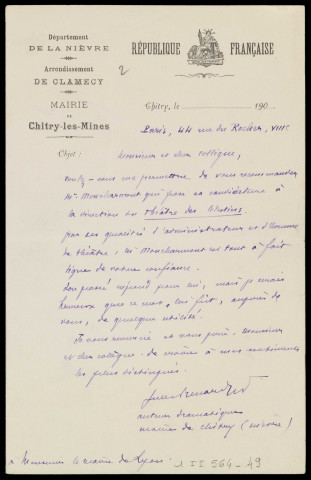 Département
DE LA NIÈVRE
Arrondissement
DE CLAMECY
MAIRIE
DE
Chitry-les-Mines
RÉPUBLIQUE FRANÇAISE
2
Chitry, le 190
Paris, 44 rue du Rocher, VIIIe
Objet : Monsieur et cher collègue,
voulez-vous me permettre de vous recommander
M. Moncharmont qui pose sa candidature à
la direction du théâtre des Célestins
par ses qualités d'administrateur et d'homme
de théâtre, M. Moncharmont est tout à fait
digne de votre confiance.
Son passé répond pour lui, mais je serais
heureux que ce mot, lui fût, auprès de
vous, de quelque utilité.
Je vous remercie et vous prie, Monsieur
et cher collègue, de croire à mes sentiments
les plus distingués.
Jules Renard
auteur dramatique
maire de Chitry (Nièvre)
à Monsieur le maire de Lyon.
1 II 564-49